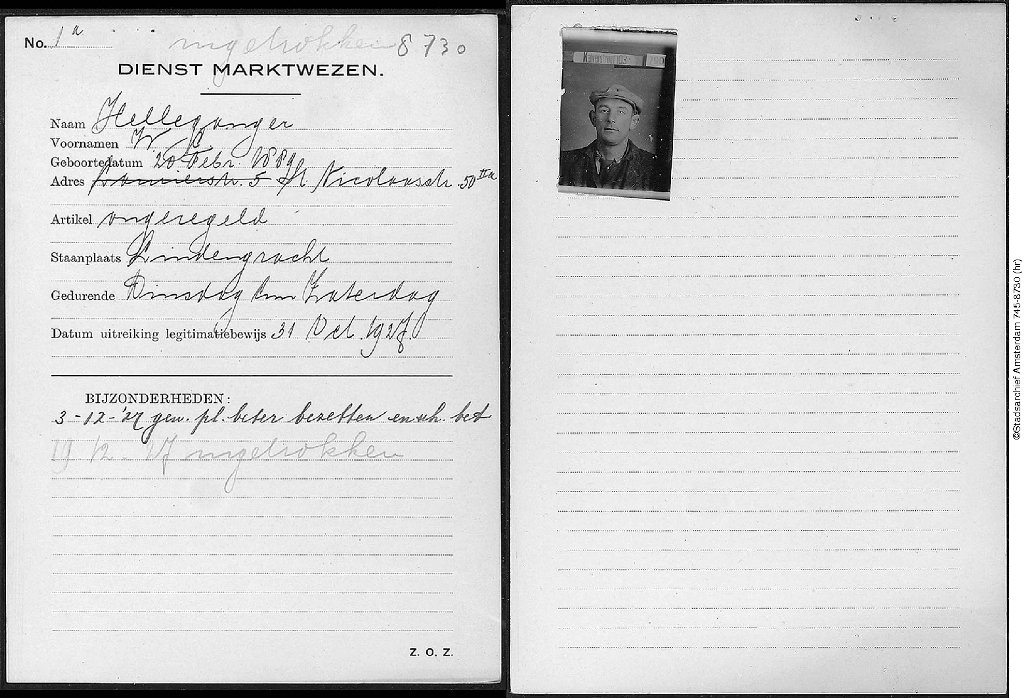 No. 1a ingetrokken 8730
DIENST MARKTWEZEN.
Naam Helleganger
Voornamen W. C.
Geboortedatum 20 Febr. 1889
Adres Laurierstr. 5 St Nicolaasstr. 50 IIa
Artikel ongeregeld
Staanplaats Lindengracht
Gedurende Dinsdag Zaterdag
Datum uitreiking legitimatiebewijs 31 Oct. 1927.
BIJZONDERHEDEN:
3-12-'27 gew. pl. beter bezetten en bet
19/12-27 ingetrokken
Z. O. Z.
©Stadsarchief Amsterdam 745-8730 (hr)